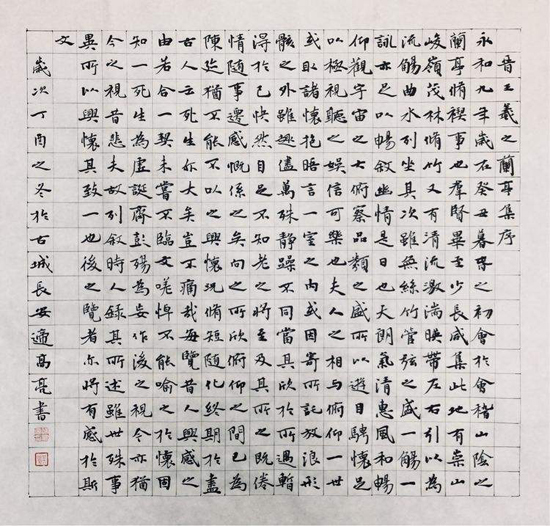 晉王羲之蘭亭集序
永和九年歲在癸丑暮春之初會於會稽山陰之
蘭亭脩禊事也群賢畢至少長咸集此地有崇山
峻嶺茂林脩竹又有清流激湍映帶左右引以為
流觴曲水列坐其次雖無絲竹管弦之盛一觴一
詠亦足以暢敘幽情是日也天朗氣清惠風和暢
仰觀宇宙之大俯察品類之盛所以遊目騁懷足
以極視聽之娛信可樂也夫人之相與俯仰一世
或取諸懷抱晤言一室之內或因寄所託放浪形
骸之外雖趣舍萬殊靜躁不同當其欣於所遇暫
得於己快然自足不知老之將至及其所之既倦
情隨事遷感慨係之矣向之所欣俯仰之間已為
陳迹猶不能不以之興懷況脩短隨化終期於盡
古人云死生亦大矣豈不痛哉每覽昔人興感之
由若合一契未嘗不臨文嗟悼不能喻之於懷固
知一死生為虛誕齊彭殤為妄作後之視今亦猶
今之視昔悲夫故列敘時人錄其所述雖世殊事
異所以興懷其致一也後之覽者亦將有感於斯
文
歲次丁酉之冬於古城長安適高亮書